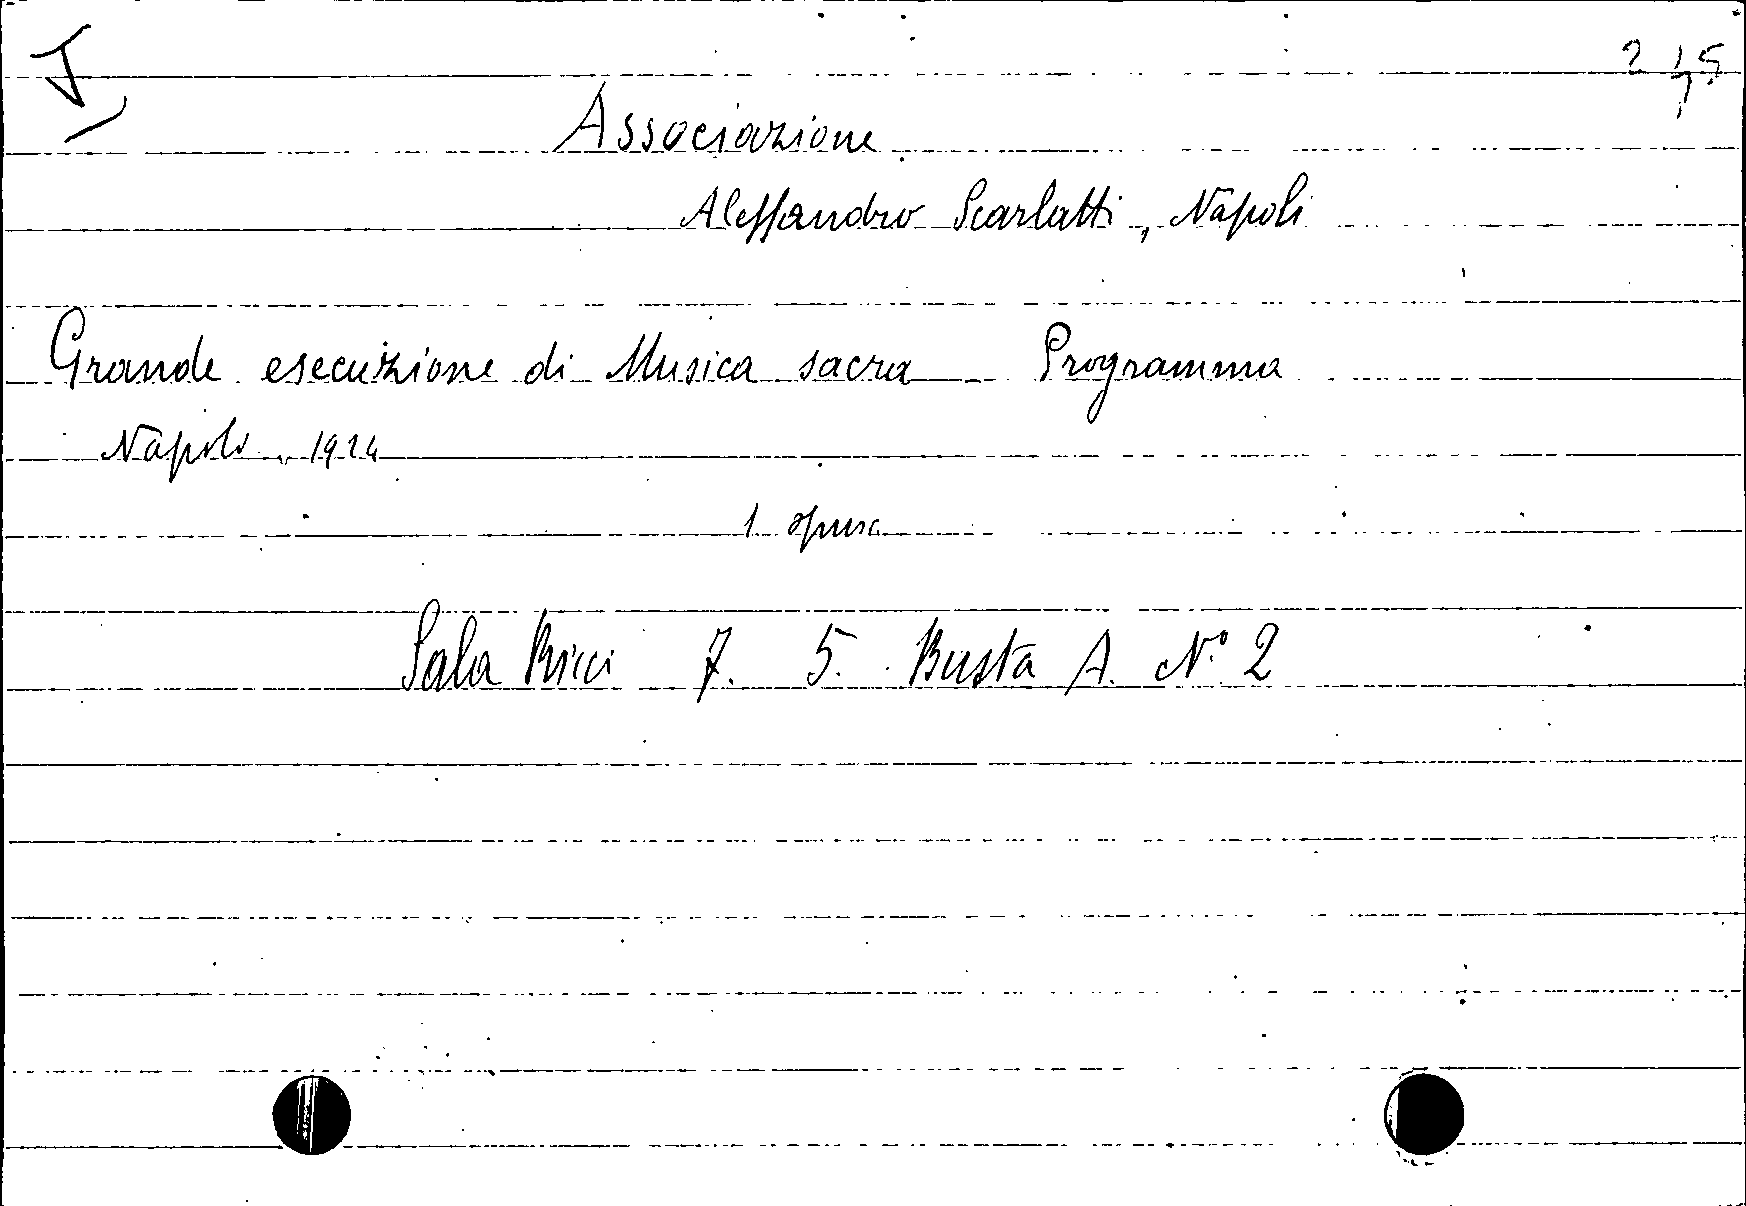 Associazione
Alessandro Scarlatti, Napoli
Grande esecuzione di Musica sacra Programma
Napoli, 1924
1 opusc.
Sala Ricci 7. 5. Busta A. N.º 2